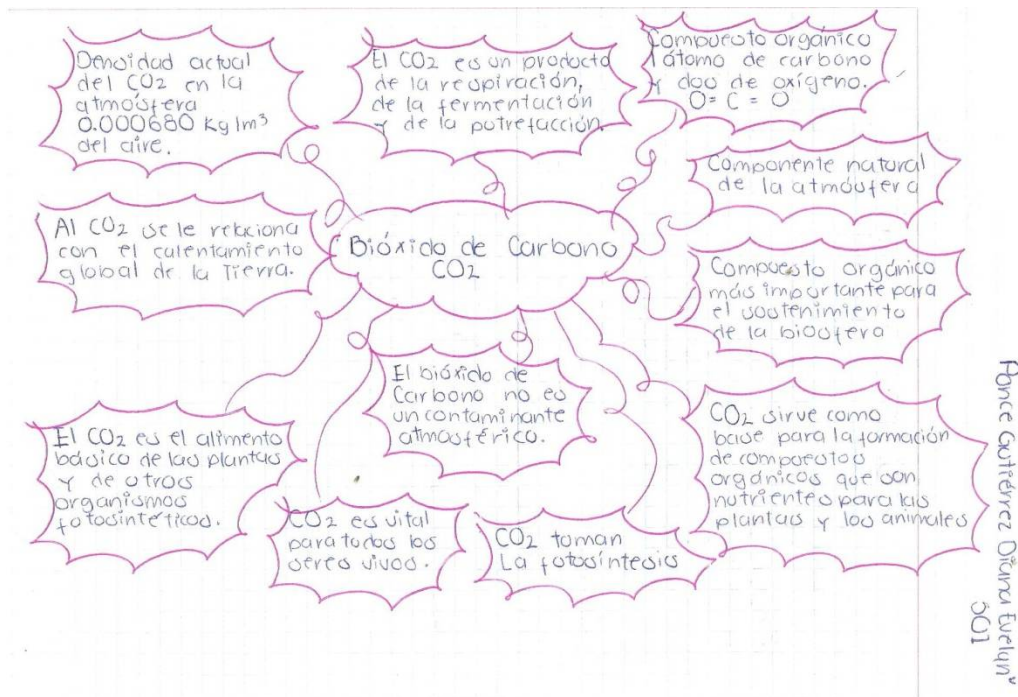 Densidad actual
del CO2 en la
atmósfera
0.000680 Kg/m³
del aire.
El CO2 es un producto
de la respiración,
de la fermentación
y de la putrefacción.
Compuesto orgánico
1 átomo de carbono
y dos de oxígeno.
O = C = O
Componente natural
de la atmósfera
Al CO2 se le relaciona
con el calentamiento
global de la Tierra.
Bióxido de Carbono
CO2
Compuesto orgánico
más importante para
el sostenimiento
de la biosfera
El bióxido de
Carbono no es
un contaminante
atmosférico.
El CO2 es el alimento
básico de las plantas
y de otros
organismos
fotosintéticos.
CO2 es vital
para todos los
seres vivos.
CO2 toman
La fotosíntesis
CO2 sirve como
base para la formación
de compuestos
orgánicos que son
nutrientes para las
plantas y los animales
Ponce Gutiérrez Diana Evelyn
501